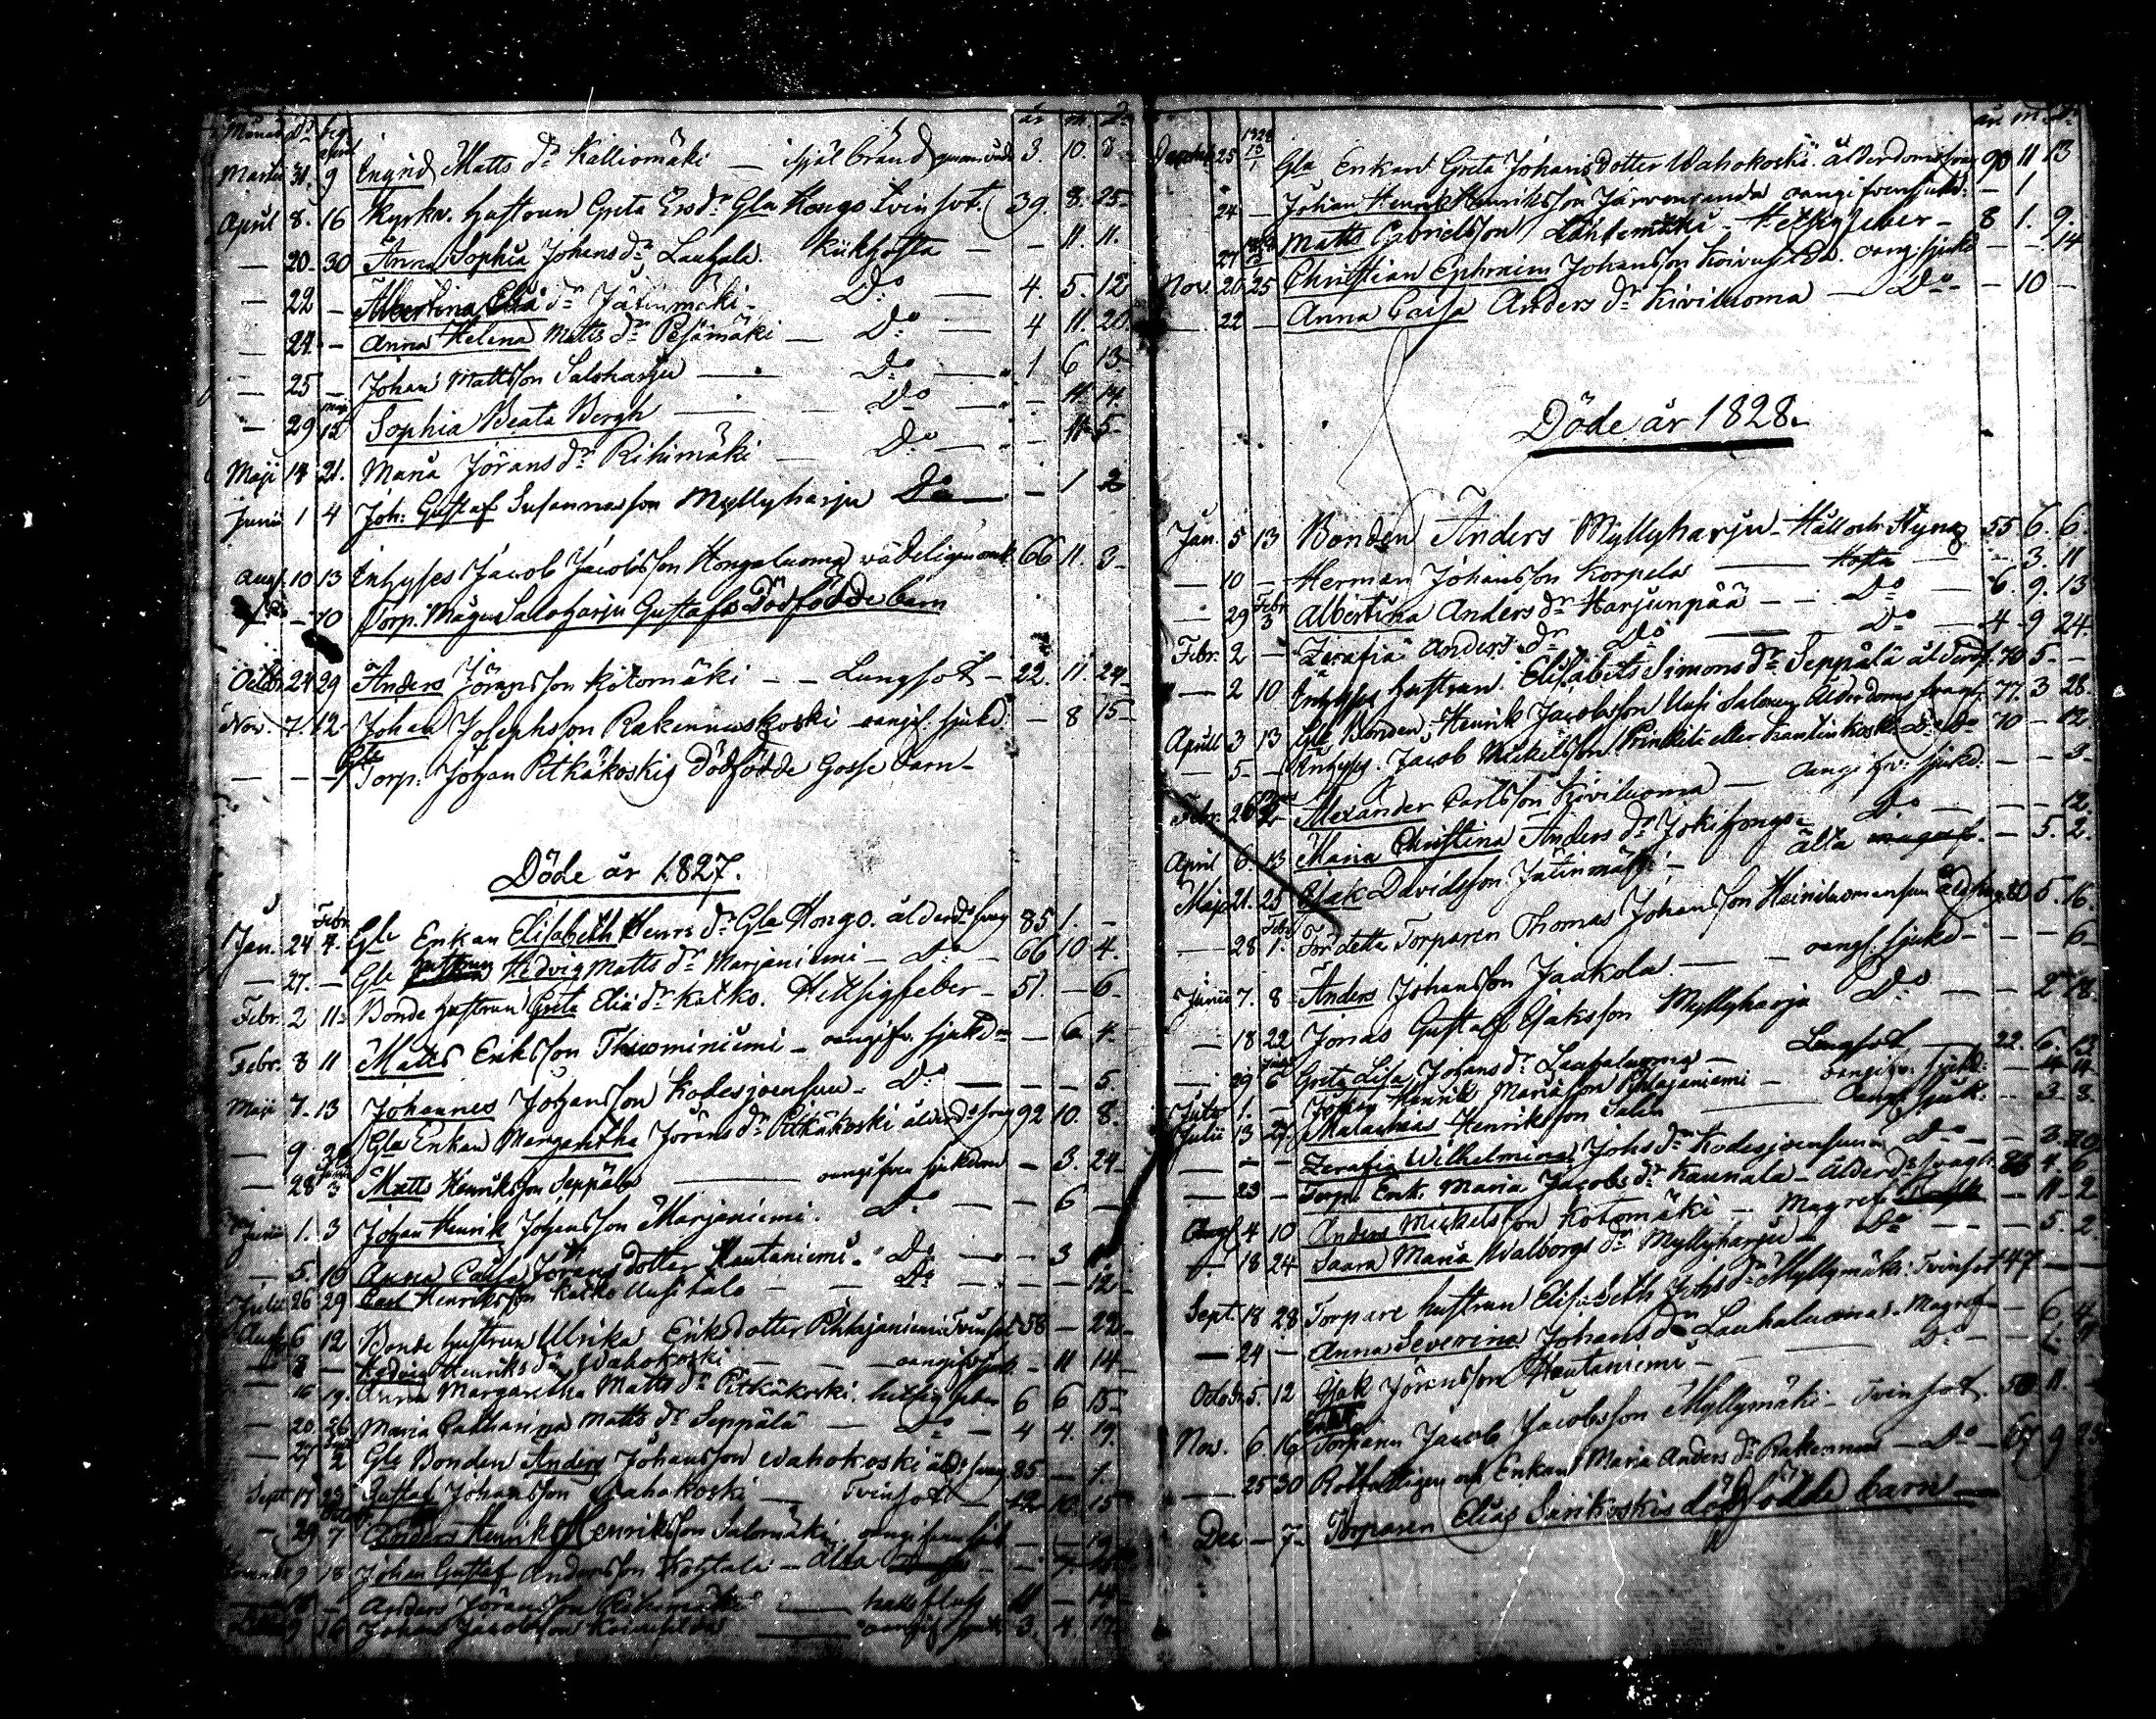 Månad Dr. beg. år m. D.
Martii 31. 9 april Ingrid Matts dr Kalliomäki — ihjäl bränd 3. 10. 8
April 8. 16 Kyrkv. hustrun Greta Ersdr Gla Kongo tvinsot. 39. 8. 25
— 20. 30 Anna Sophia Johans dr Lauhala. Kikhosta — — 11. 11.
— 22 — Albertina Elia dr Jätinmäki — Do — 4. 5. 12
— 24 — Anna Helena Matts dr Pesämäki — Do — 4 11. 20.
— 25 — Johan Mattsson Saloharju — Do — 1 6 13
— 29 maji 12 Sophia Beata Bergh — Do — — 11. 14.
Maji 14 21. Maria Jörans dr Rihimäki — Do — — 11 5
Junii 1 4 Joh: Gustaf Susannasson Myllyharju Do — — 1 2
Aug. 10 13 Inhyses Jacob Jacobsson Hongoluoma 66 11. 3
— 10 Torp. Mågen Saloharju Gustafs Dödfödde barn
Octobr. 24 29 Anders Jöransson Kotomäki — Lungsot — 22. 11. 24
Nov. 7. 12 Johan Josephsson Rakennuskoski oangif. sjukd. — 8 15
— — — Torp. Johan Pitkäkoskis dödfödde Gosse barn
Döde år 1827.
Jan. 24 Febr. 4. Gle Enkan Elisabeth Henr. dr Gla Hongo. ålderds svag 85 1. —
— 27. — Gle hustrun Hedvig Matts dr Marjaniemi — Do — 66 10 4.
Febr. 2 11 Bonde hustrun Greta Elia dr Katko. Hetsigfeber — 51. — 6
Febr. 8 11 Matts Eriksson — oangifv. sjukd — — 6 4
Maji 7. 13 Johannes Johansson Kodesjoensuu — Do — — — 5.
— 9. 20 Gla Enkan Margaretha Jörans dr Pitkäkoski ålderds svag 92 10. 8.
— 28 Junii 3 Matts Henriksson Seppälä — oangifven sjukdom — 3. 24
Junii 1. 3 Johan Henrik Johansson Marjaniemi. Do — — 6 —
— 5. 10 Anna Caisa Jöransdotter Hautaniemi. Do — — 3
Julii 26 29 Carl Henriksson Katko Uusitalo — Do — — — 12
Aug. 6 12 Bonde hustrun Ulrika Eriksdotter Pihlajaniemi Tvinsot 58 — 22
— 8 — Hedvig Henriks dr Wahokoski — oangifv. — 11 14
— 16 19. Anna Margaretha Matts dr Pitkäkoski. hetsig feber 6 6 15
— 20. 26 Maria Catharina Matts dr Seppälä — Do — 4 4. 19.
— 27 2 Gle Bonden Anders Johansson Wahokoski ålds svag 85 — 1.
Sept. 17 23 Gustaf Johansson Wahokoski — Tvinsot — 12 10. 15
— 29 7 Anders Henrik Henriksson Salomäki oangifven — — 19
9 18 Johan Gustaf Andersson Kohtala — älta
— Anders Jöransson Rihimäki — hals fluss 11 — 14
9 16 Johan Jacobsson — oangif. 3. 4. 17
år. m. D.
25 1828 13/1 Gla Enkan Greta Johans Dotter Wahokoski. ålderdomssvag 90 11 13
24 — Johan Henrik Henriksson Järvenranda oangifven sjukd. — 1
27 Matts Gabrielsson Lähtemäki — Hetsigfeber — 8 1. 9.
Nov. 20 25 Christian Ephraim Johansson oang. sjukd — — 14
— 22 — Anna Caisa Anders dr Kiviluoma — Do — — 10 —
Döde år 1828.
Jan. 5 13 Bonden Anders Myllyharju — Håll och Styng 55 6. 6.
— 10 — Herman Johansson Korpela — Hosta — 3. 11
— 29 Febr. 3 Albertina Anders dr Harjunpää — Do — 6. 9. 13
Febr. 2 — Zerafia Anders dr Do — Do — 4 9 24
— 2 10 Inhyses hustrun Elisabeth Simons dr Seppälä 70 5. —
Aprill 3 13 Gle Bonden Henrik Jacobsson Uusi Salomäki Ålderdoms svagh. 77. 3 28.
— 5 — Inhyses. Jacob Michelsson Prinkkilä eller Hautinkoski Do 70 — 12
Febr. 26 Alexander Carlsson Kiviluoma — oangifv: sjukd: — — 3
April 6. 13 Maria Christina Anders dr Jokihongo — Do — — — 12.
Maji 21. 25 Isak Davidsson Jätinmäki — älta — 5. 2.
— 28 1. För detta Torparen Thomas Johansson Heiniluomansuu 5. 16.
Junii 7. 8 Anders Johansson Jaakola — oangf. sjukd — — — 6
— 18 22 Jonas Gustaf Isaksson Myllyharju Do — — 2 18.
— 29 6 Greta Lisa Johans dr Lauhaluoma — Lungsot 22. 6. 13
Julii 1. — Johan Henrik Mariasson Pihlajaniemi — oangifv. sjukd: — 4 14
Julii 13 27. Malachias Henriksson Salu — oangf. sjuk. — 3 8.
— — — Zerafia Wilhelmina Johs dr Kodesjoensuu Do — — 3. 20
— 23 — Torpe. Enk. Maria Jacobs dr Kaunala — Ålderds svagh. 4. 6
Aug. 4 10 Anders Mickelsson Kotomäki — Magref — 11 2
— 18 24 Saara Maria Walborgs dr Myllyharju — Do — — 5. 2.
Sept. 18 28 Torpare hustrun Elisabeth Johs dr Myllymäki. Tvinsot 47 — —
— 24 — Anna Severina Johans dr Lauhaluoma. Magref — 6 4
Octobr. 5. 12 Isak Jöransson Hautaniemi — Do —
Nov. 6. 16 Torparen Jacob Jacobsson Myllymäki — Tvinsot. 50 11.
— 25 30 Rothattigen och Enkan Maria Anders dr Rakennus — Do — 67 9
Dec — 7 Torparen Elias Sarikoskis dödfödde barn